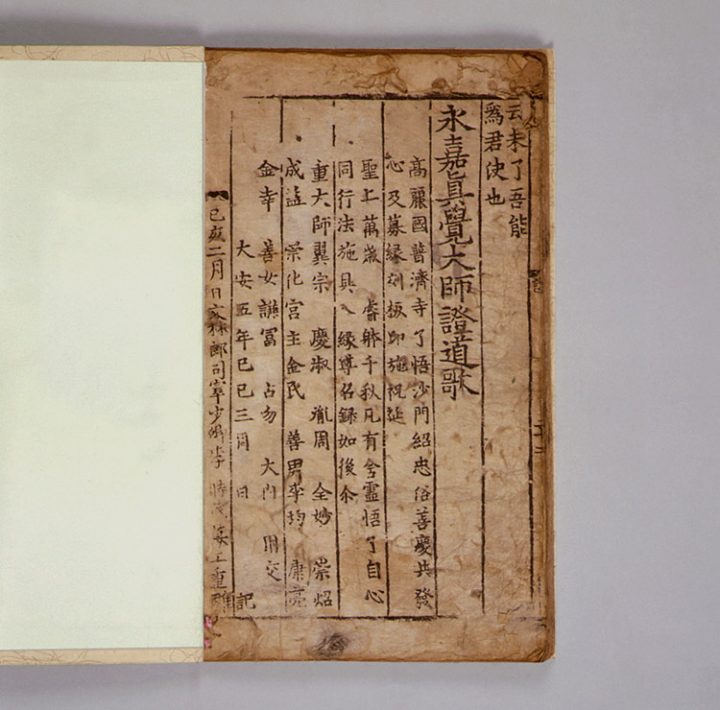 云未了吾能
爲君決也
永嘉眞覺大師證道歌
高麗國普濟寺了悟沙門紹忠俗善慶共發
心及募緣刻板印施祝延
聖上萬歲 睿躰千秋凡有含靈悟了自心
同行法施具 緣尊名錄如後尒
重大師翼宗 慶淑 胤周 全妙 崇炤
成益 景化宮主金氏 善男李均 康亮
金幸 善女 占勿 大門 用交
大安五年己巳三月 日 記
己亥二月日 郎司宰少 李 工重